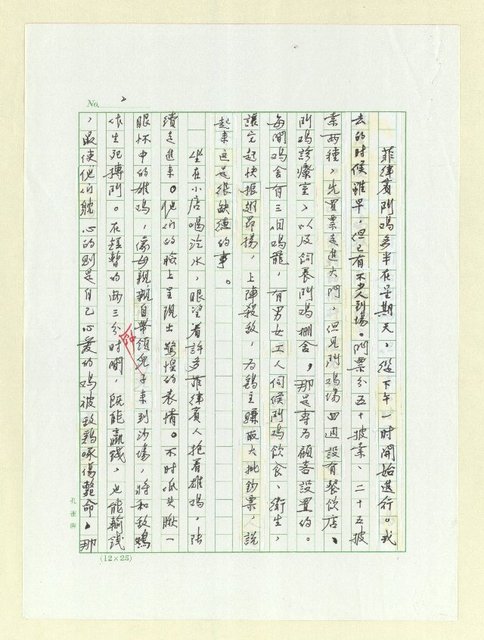 No. 2
菲律賓鬥鷄多半在星期天，從下午一時開始進行。我
去的時候雖早，但已有不少人到場。門票分五十披索、二十五披
索兩種，先買票走進大門，但見鬥鷄場四週設有餐飲店、
鬥鷄診療室，以及飼養鬥鷄棚舍，那是專為顧客設置的。
每間鷄舍有三個鷄籠，有男女工人伺候鬥鷄飲食、衛生，
讓它趕快振翅昂揚，上陣殺敵，為鷄主賺取大批鈔票，說
起來這是很缺德的事。
坐在小店喝冷水，眼望着許多菲律賓人抱着雄鷄，陸
續走進來。他們的臉上呈現出驚惶的表情。不時低頭瞅一
眼懷中的雄鷄，像母親親自帶領兒子來到沙場，將和敵鷄
作生死搏鬥。在短暫的兩三分鐘時間，既能贏錢，也能輸錢
，最使他們驚心的則是自己心愛的鷄被敵鷄啄傷斃命，那
(12×25)